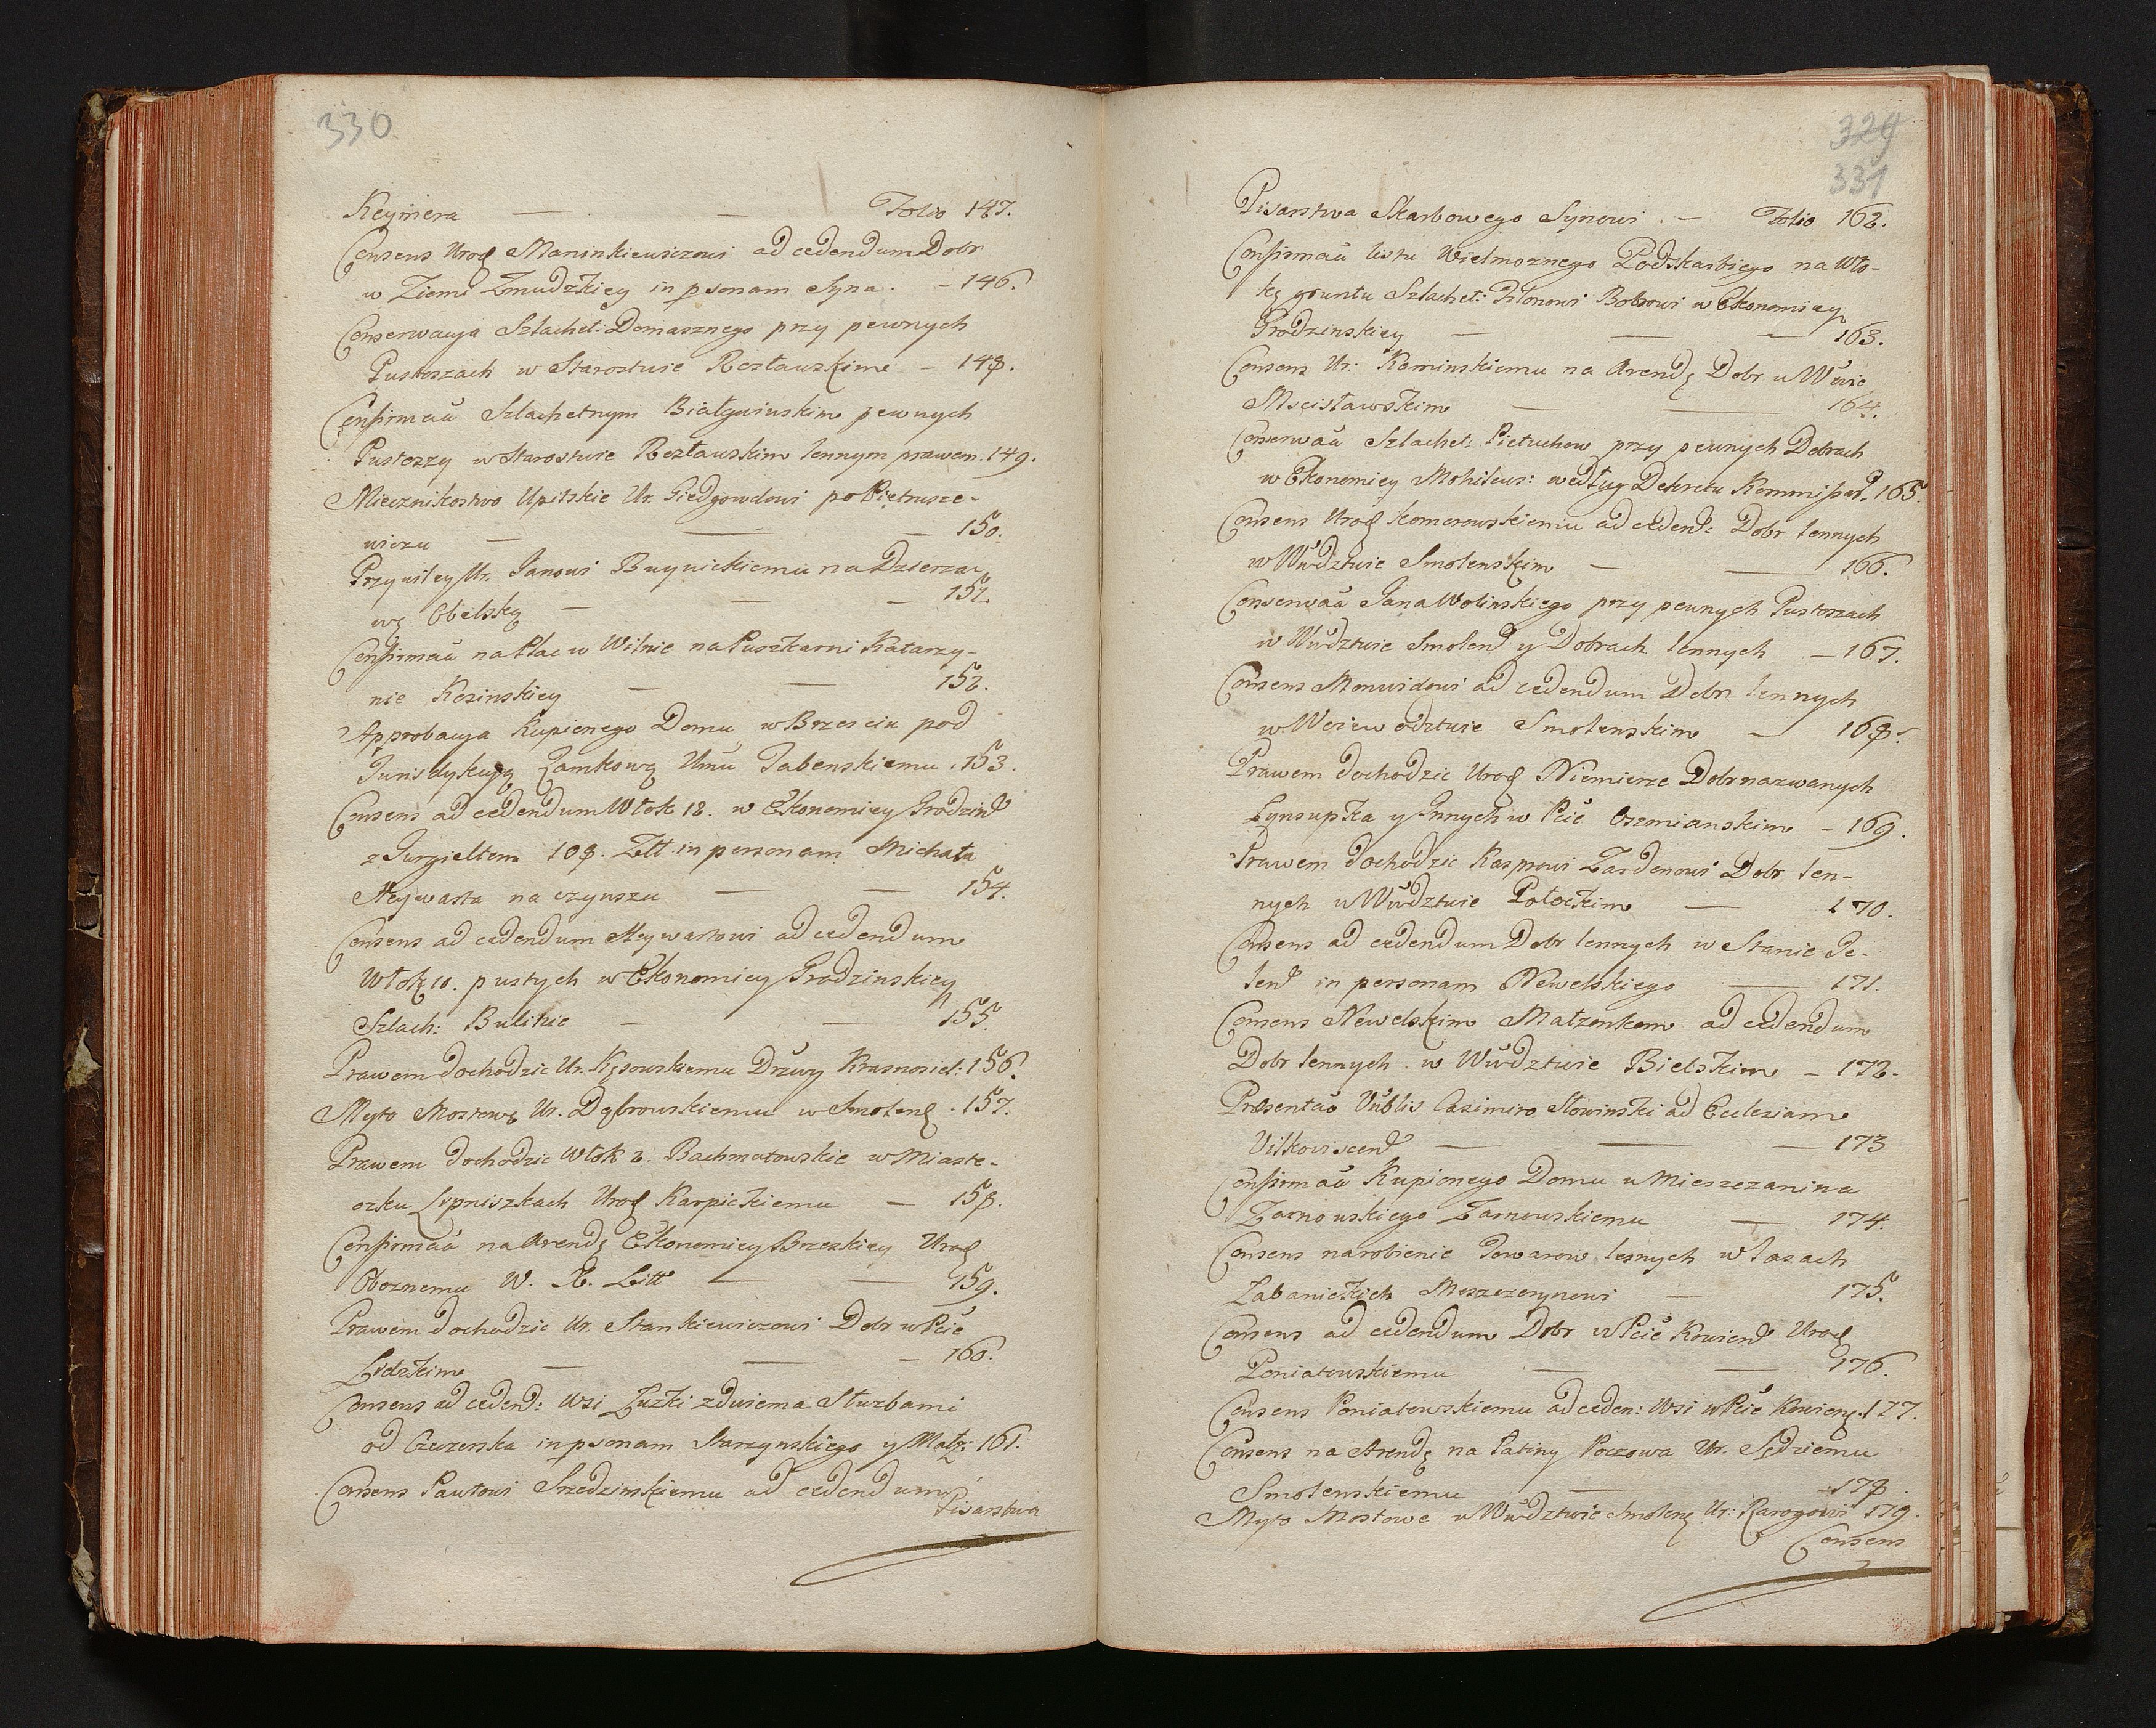 330
Keymera — — Folio 147.
Consens Urod Maninkiewiczowi ad cedendum Dobr
w Ziemi Zmudzkiey in psonam Syna. - 146.
Conserwacya Szlachet: Domasznego przy pewnych
Pustoszach w Starostwie Rosławskim - 148.
Confirmaců Szlachetnym Białgwinskim pewnych
Pustoszy w Starostwie Rosławskim lennym prawem. 149.
Miecznikostwo Upitskie Ur. Giedgowdowi po Pietrusze-
wiczu — — — 150.
Przywiley Ur. Janowi Buynickiemu na Dzierza-
wę Obelską — — — 151.
Confirmaců na Plac w Wilnie na Puszkarni Katarzy-
nie Kozinskiey — — 152.
Approbacya Kupionego Domu w Brzesciu pod
Jurisdykcyą Zamkową Umu Jabenskiemu. 153.
Consens ad cedendum Włok 18. w Ekonomiey Grodzin
z Jurgieltem 108. Złł in personam Michała
Heywarta na czynszu — — 154.
Consens ad cedendum Heywartowi ad cedendum
Włok 10. pustych w Ekonomiey Grodzinskiey
Szlach: Bulikie — — 155.
Prawem dochodzic Ur. Kęsowskiemu Drzwy Krasnosiel: 156.
Myto Mostowe Ur. Dąbrowskiemu w Smolen. 157.
Prawem dochodzic Włok 2. Bachmatowskie w Miaste-
czku Lipniszkach Urod Karpickiemu — 158.
Confirmaců na Arendę Ekonomiey Brzeskiey Urod
Oboznemu W. X. Litt — — 159.
Prawem dochodzic Ur. Stankiewiczowi Dobr w Pcie
Lidzkim — — — 160.
Consens ad cedend: Wsi Łuzki zdwiema Służbami
od Czeczerska in psonam Starzynskiego y Małz: 161.
Consens Pawłowi Srzedzinskiemu ad cedendum
Pisarstwa
329
331
Pisarstwa Skarbowego Synowi. — Folio 162.
Confirmaců listu Wielmoznego Podskarbiego na Wło-
kę gruntu Szlachet: Bobrowi w Ekonomiey
Grodzinskiey — — — 163.
Consens Ur: Kaminskiemu na Arendę Dobr w Wwie
Mscisławskim — — 164.
Conserwaců Szlachet: Pietuchow przy pewnych Dobrach
w Ekonomiey Mohilews: według Dekretu Kommissar. 165.
Consens Urod Komorowskiemu ad cedend: Dobr lennych
w Wwdztwie Smolenskim — — 166.
Conserwaců Jana Wolinskiego przy pewnych Pustoszach
w Wwdztwie Smolen y Dobrach lennych — 167.
Consens Monwidowi ad cedendum Dobr lennych
w Woiewodztwie Smolenskim — 168.
Prawem dochodzic Urod Niemierze Dobr nazwanych
Lynsupka y Innych w Pcie Oszmianskim - 169.
Prawem dochodzic Kasprowi Zardenowi Dobr len-
nych w Wwdztwie Połockim — 170.
Consens ad cedendum Dobr lennych w Stanie Je-
len in personam Newelskiego — 171.
Consens Newelskim Małzonkom ad cedendum
Dobr lennych w Wwdztwie Bielskim - 172.
Præsentaõ Vublis Casimiro Słowinski ad Ecclesiam
Vilkowiscen — — — 173
Confirmaců Kupionego Domu u Mieszczanina
Żarnowskiego Zarnowskiemu — 174.
Consens narobienie Towarow lesnych w lasach
Łabanickich Moszczerynowi — 175.
Consens ad cedendum Dobr w Pcie Kowien Urod
Poniatowskiemu — — 176.
Consens Poniatowskiemu ad ceden: Wsi w Pcie Kowien. 177.
Consens na Arendę na Patiny Poczowa Ur. Sędziemu
Smolenskiemu — — 178.
Myto Mostowe w Wwdztwie Smolen Ur: Rarogowi 179.
Consens